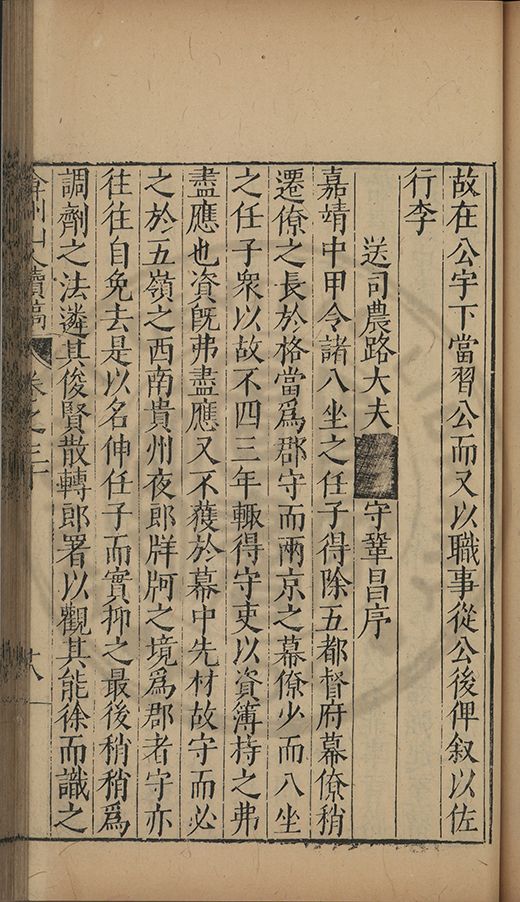 故在公宇下當習公而又以職事從公後俾叙以佐
行李
送司農路大夫守鞏昌序
嘉靖中甲令諸八坐之任子得除五都督府幕僚稍
遷僚之長於格當爲郡守而兩京之幕僚少而八坐
之任子衆以故不四三年輙得守吏以資簿持之弗
盡應也資旣弗盡應又不獲於幕中先材故守而必
之於五嶺之西南貴州夜郎牂牁之境爲郡者守亦
往往自免去是以名伸任子而實抑之最後稍稍爲
調劑之法遴其俊賢散轉郎署以觀其能徐而識之
山人續稿 卷之三十 廿八